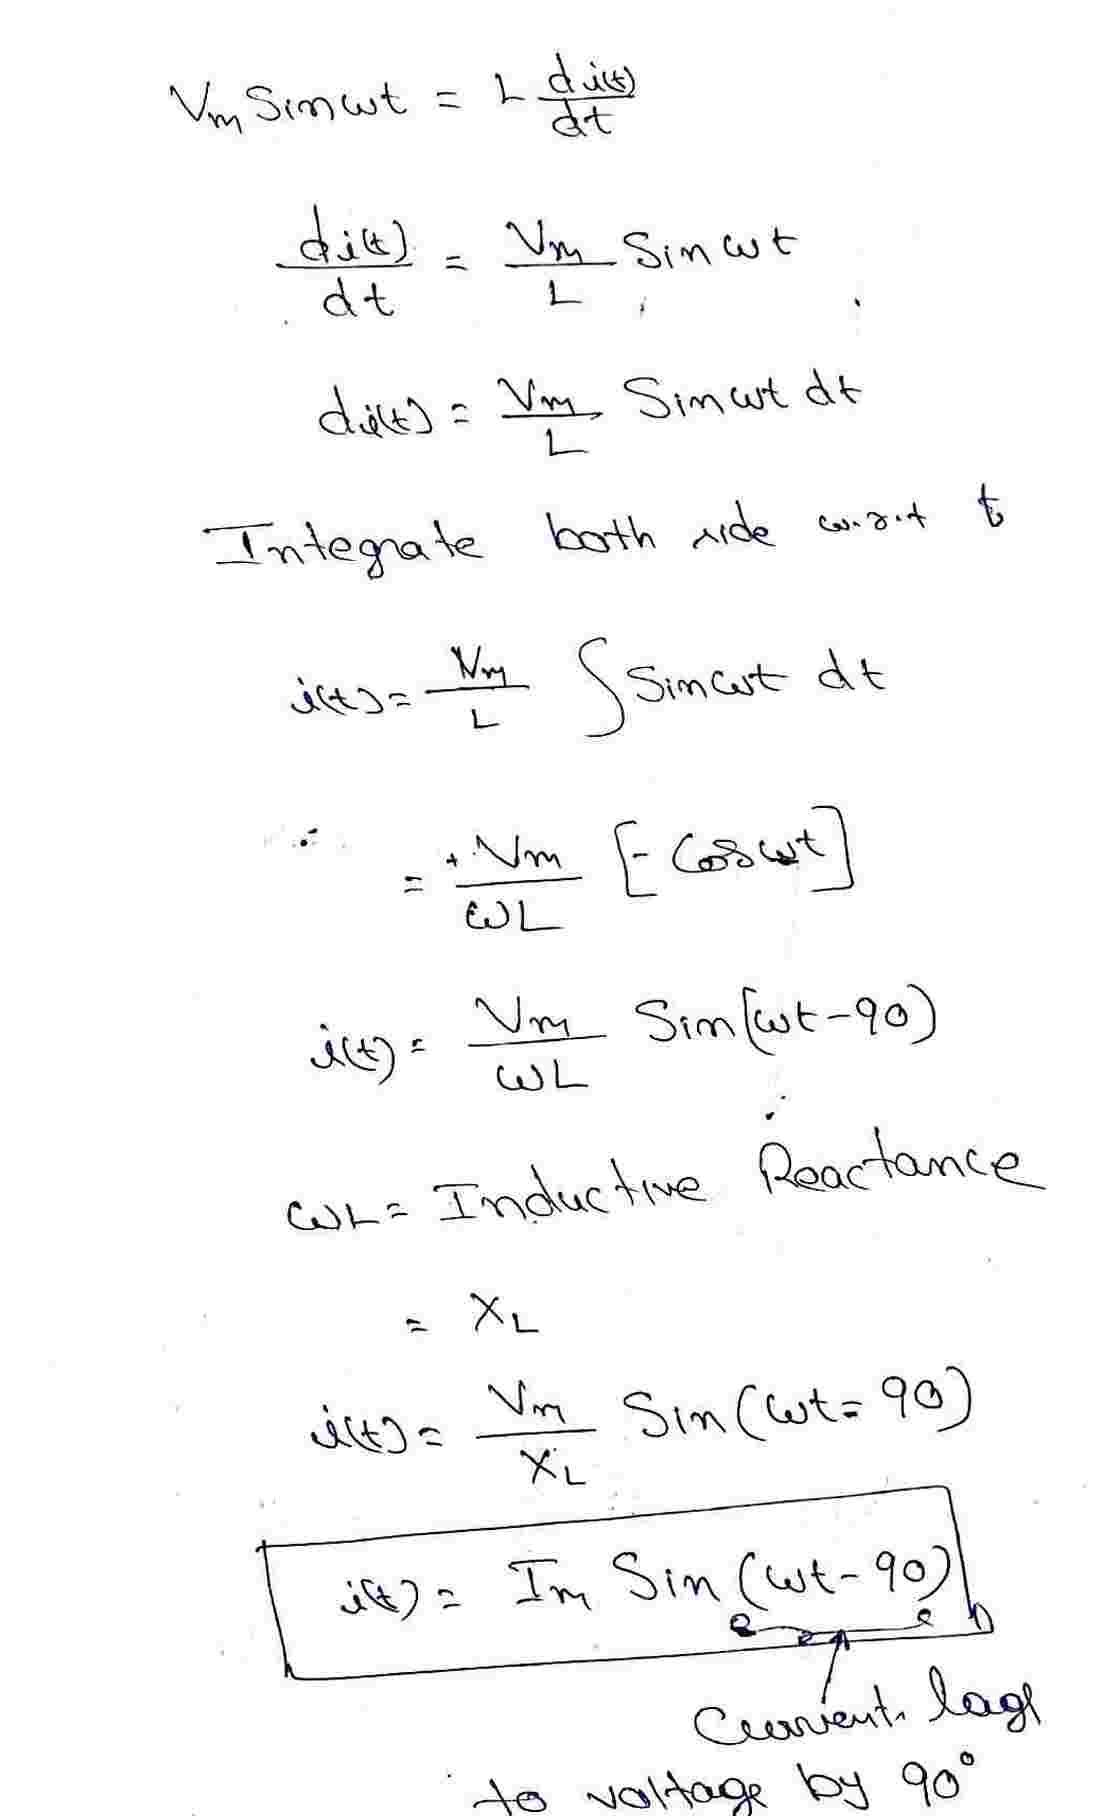 Vm Sin ωt = L di(t)/dt
di(t)/dt = Vm/L Sin ωt
di(t) = Vm/L Sin ωt dt
Integrate both side w.r.t t
i(t) = Vm/L ∫ Sin ωt dt
= + Vm/ωL [- Cos ωt]
i(t) = Vm/ωL Sin(ωt-90)
ωL = Inductive Reactance
= XL
i(t) = Vm/XL Sin(ωt= 90)
i(t) = Im Sin (ωt-90)
Current lags
to voltage by 90°